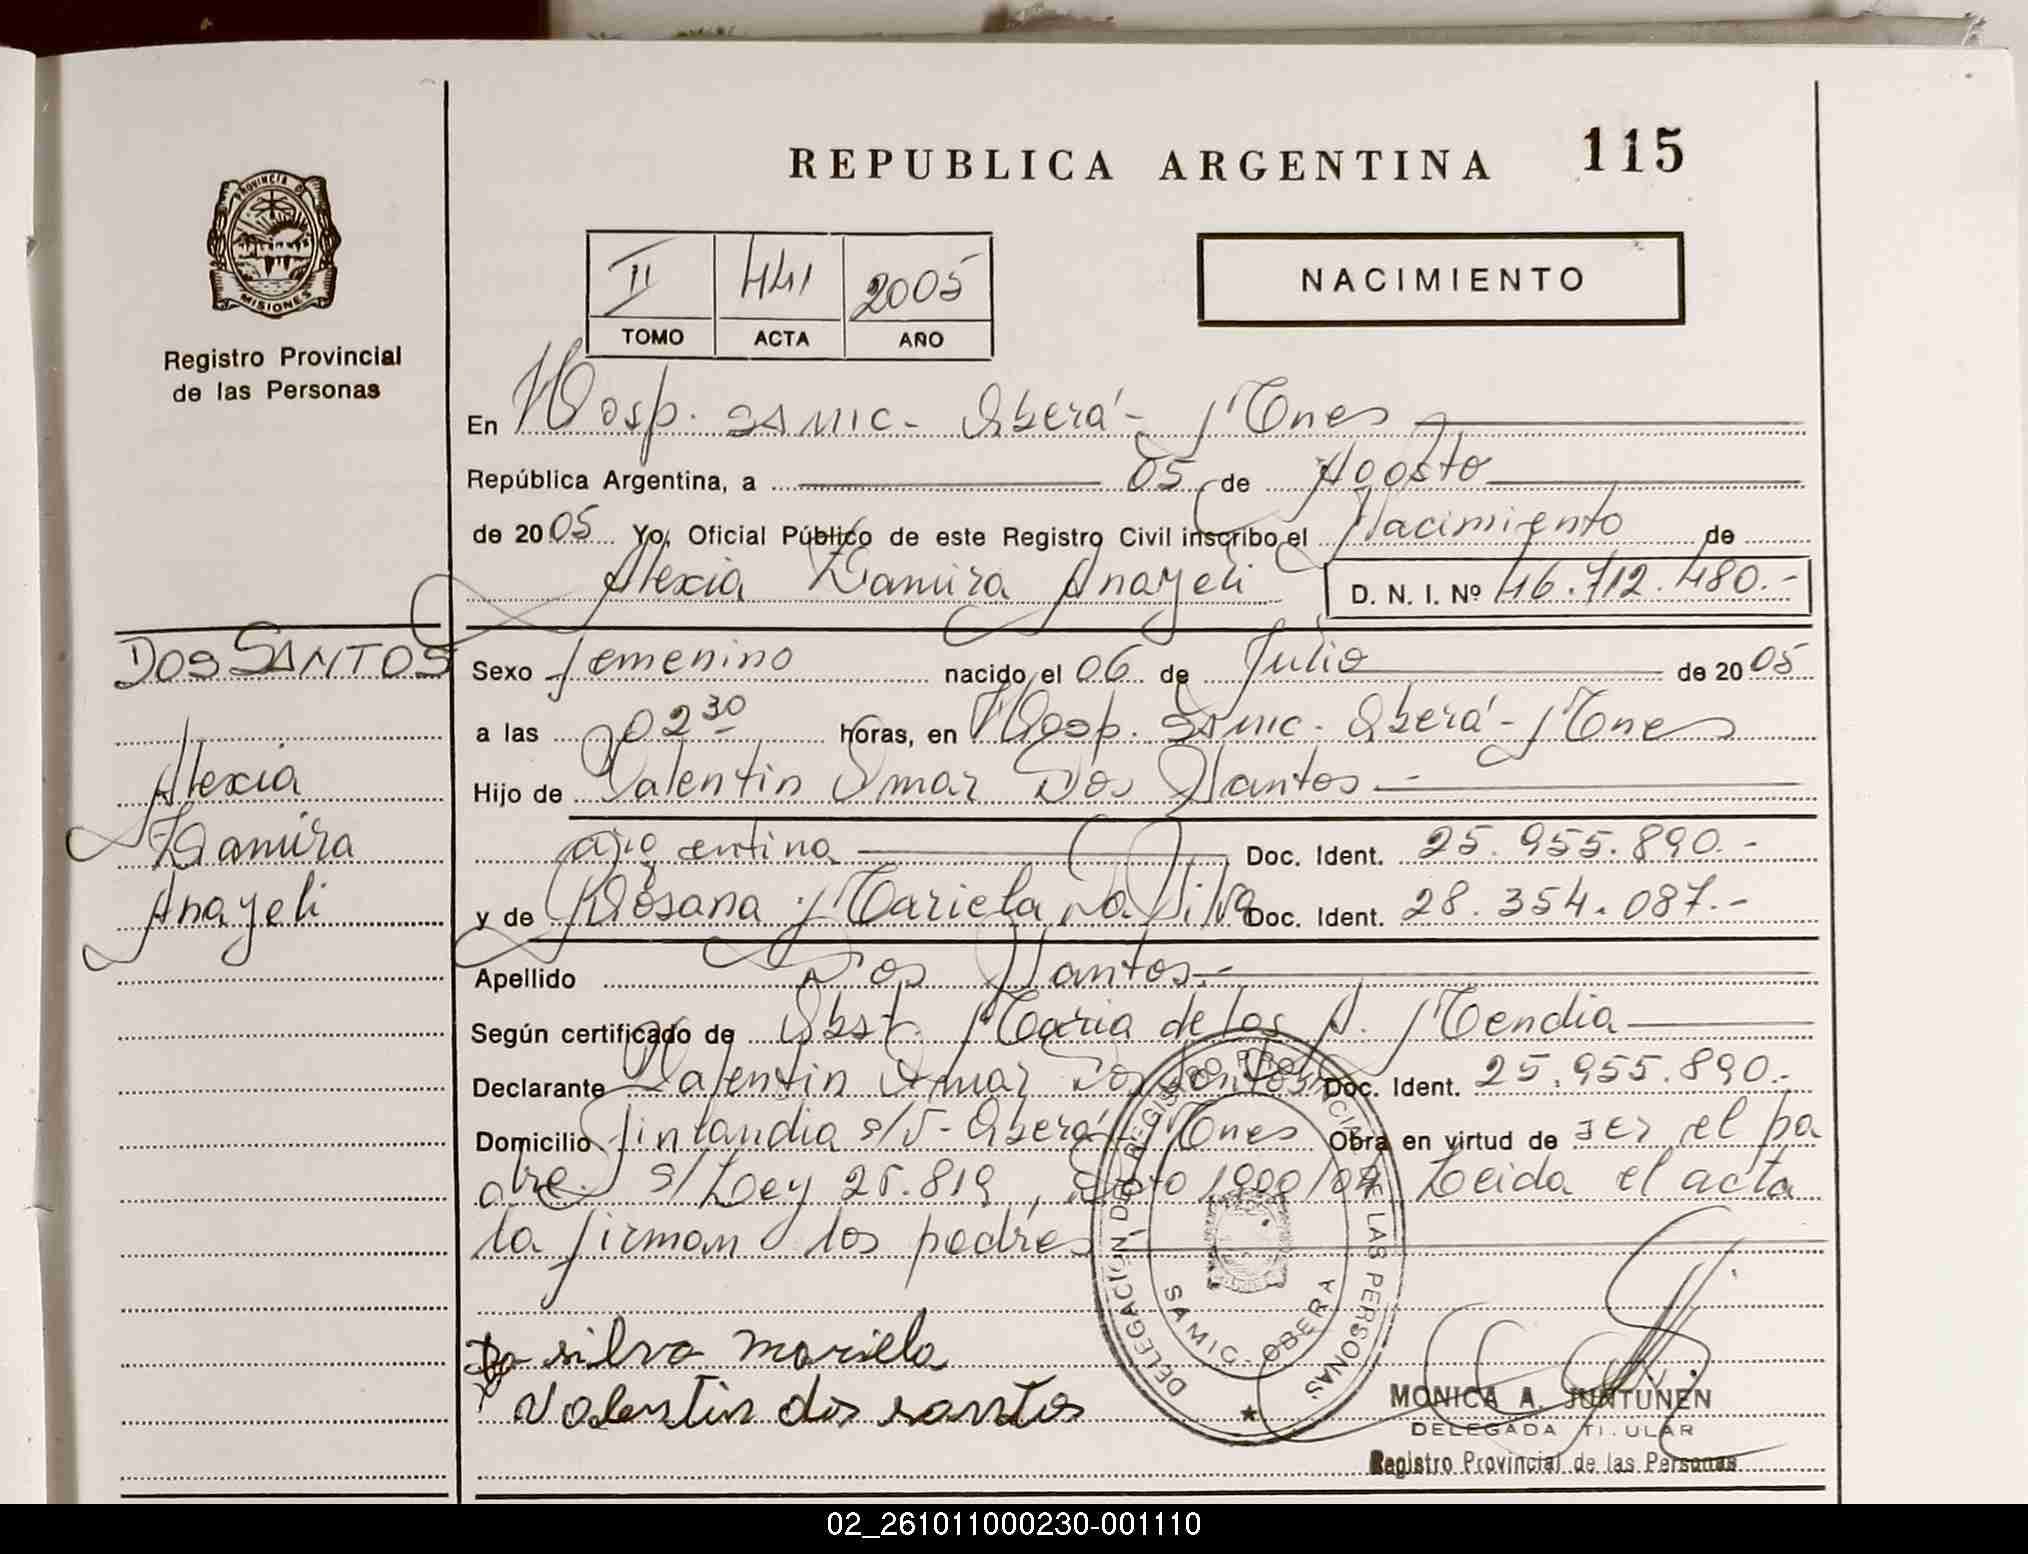 REPUBLICA ARGENTINA 115
PROVINCIA D
MISIONES
Registro Provincial
de las Personas
II 441 2005
TOMO ACTA AÑO
NACIMIENTO
En Hosp. SAMIC - Oberá - Mnes
República Argentina, a 05 de Agosto
de 2005 Yo, Oficial Público de este Registro Civil inscribo el Nacimiento de
Alexia Zamira Anayeli D. N. I. Nº 46.712.480.-
DOS SANTOS
Alexia
Zamira
Anayeli
Sexo femenino nacido el 06 de Julio de 2005
a las 02 30 horas, en Hosp. SAMIC - Oberá - Mnes
Hijo de Valentin Omar Dos Santos -
argentina Doc. Ident. 25.955.890.-
y de Rosana Mariela Da Silva Doc. Ident. 28.354.087.-
Apellido Dos Santos.-
Según certificado de Obst. Maria de los A. Mendia
Declarante Valentin Omar Dos Santos Doc. Ident. 25.955.890.-
Domicilio Finlandia s/N - Oberá - Mnes Obra en virtud de ser el pa
dre. s/Ley 25.819, Dto 1900/04 Leida el acta
la firman los padres
DELEGACIÓN DEL REGISTRO PROVINCIAL DE LAS PERSONAS
SAMIC - OBERA
Da silva mariela
Valentin dos santos
MONICA A. JUNTUNEN
DELEGADA TITULAR
Registro Provincial de las Personas
02_261011000230-001110